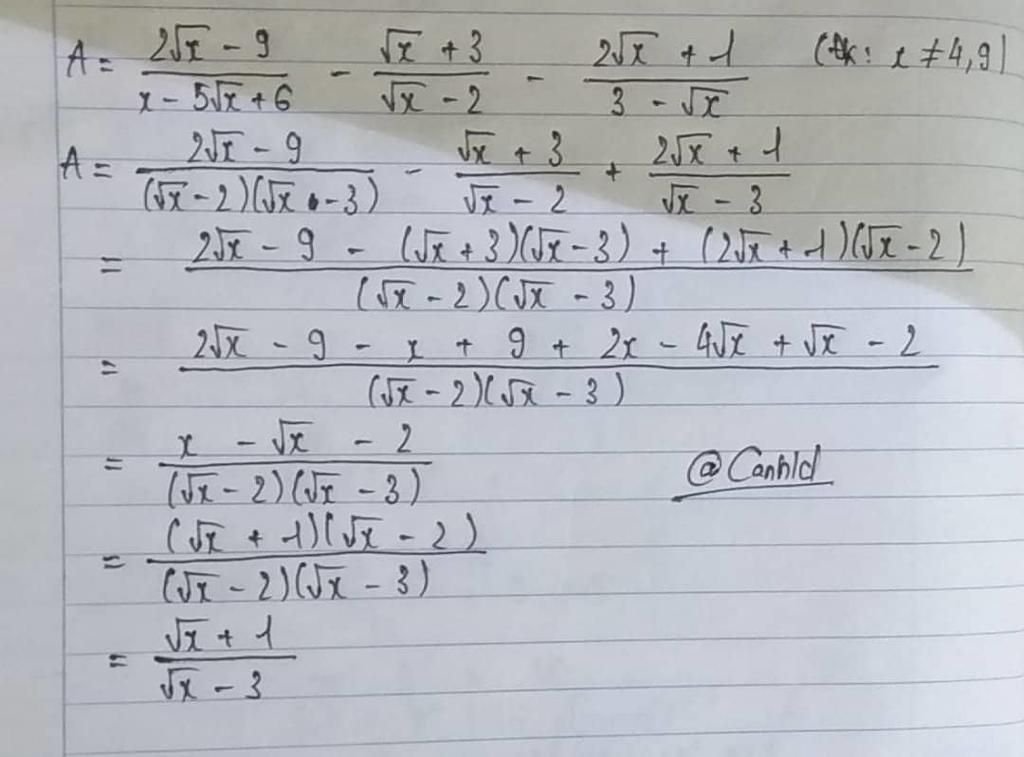 A = \frac{2\sqrt{x} - 9}{x - 5\sqrt{x} + 6} - \frac{\sqrt{x} + 3}{\sqrt{x} - 2} - \frac{2\sqrt{x} + 1}{3 - \sqrt{x}} (đk: x ≠ 4, 9)
A = \frac{2\sqrt{x} - 9}{(\sqrt{x} - 2)(\sqrt{x} - 3)} - \frac{\sqrt{x} + 3}{\sqrt{x} - 2} + \frac{2\sqrt{x} + 1}{\sqrt{x} - 3}
= \frac{2\sqrt{x} - 9 - (\sqrt{x} + 3)(\sqrt{x} - 3) + (2\sqrt{x} + 1)(\sqrt{x} - 2)}{(\sqrt{x} - 2)(\sqrt{x} - 3)}
= \frac{2\sqrt{x} - 9 - x + 9 + 2x - 4\sqrt{x} + \sqrt{x} - 2}{(\sqrt{x} - 2)(\sqrt{x} - 3)}
= \frac{x - \sqrt{x} - 2}{(\sqrt{x} - 2)(\sqrt{x} - 3)}
@Canhld
= \frac{(\sqrt{x} + 1)(\sqrt{x} - 2)}{(\sqrt{x} - 2)(\sqrt{x} - 3)}
= \frac{\sqrt{x} + 1}{\sqrt{x} - 3}